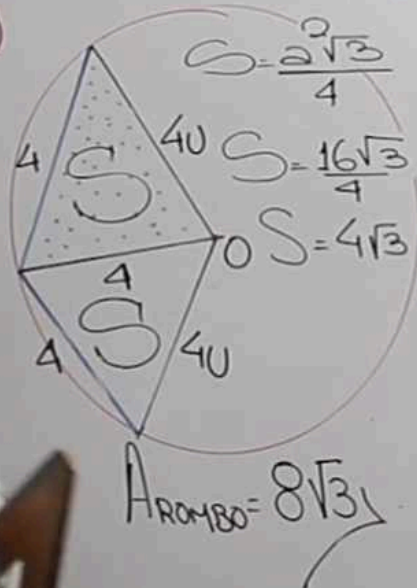 S=a²√3/4
4
4U
S
S=16√3/4
O
S=4√3
4
S
4
4U
AROMBO=8√3